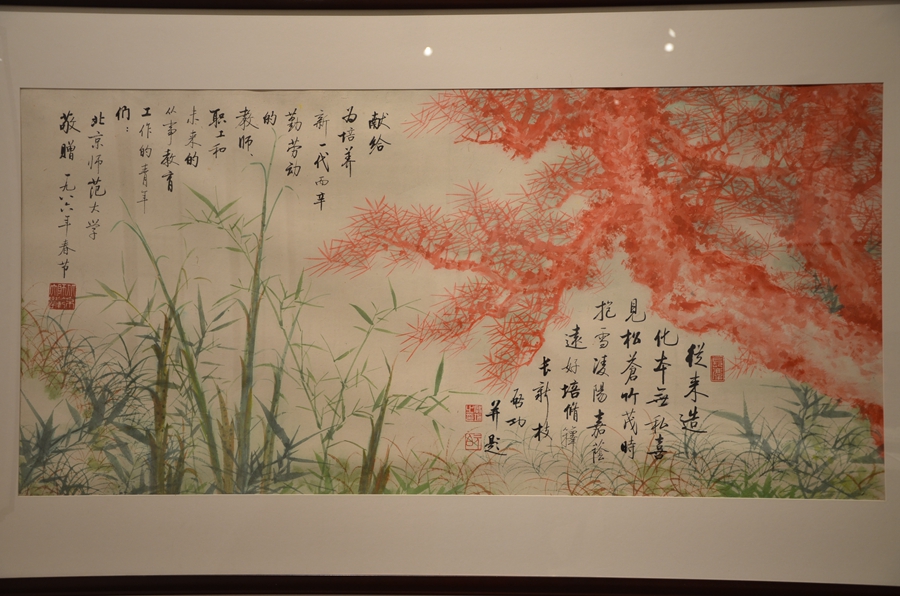 從来造
化本无私喜
見松蒼竹茂時
抱雪凌陽嘉蔭
遠好培脩籜
長新枝
启功
并题
献给
为培养
新一代而辛
勤劳动
的
教师、
职工和
未来的
从事教育
工作的青年
们：
北京师范大学
敬贈 一九八六年春节